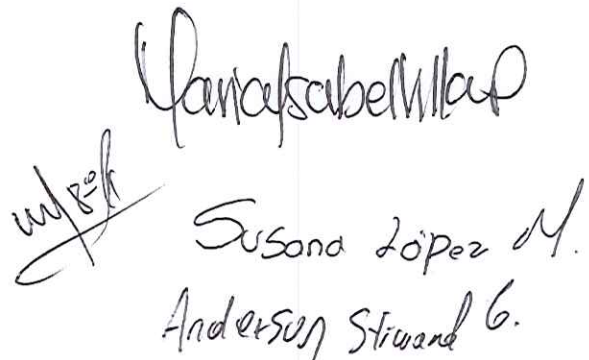 MariaIsabelVillaP
Susana López M.
Anderson Stiwand G.